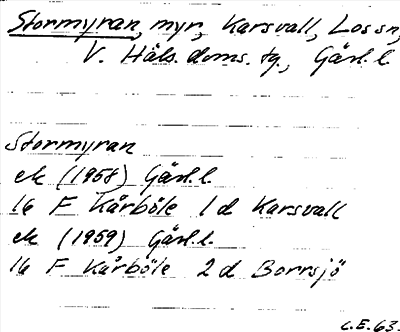 Stormyran, myr, Karsvall, Los sn,
V. Häls. doms. tg., Gävl. l.
Stormyran
ek (1958) Gävl. l.
16 F Kårböle 1d Karsvall
ek (1959) Gävl. l.
16 F Kårböle 2d Borrsjö
C.E. 63.